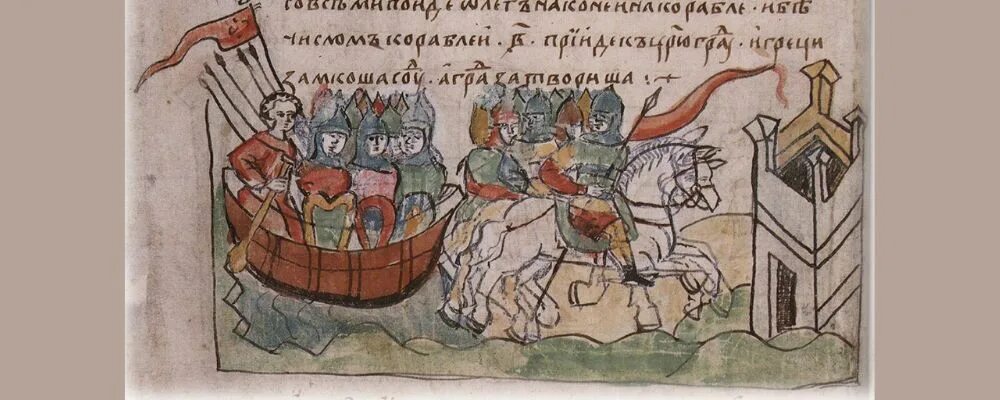 совсѣми поиде ѡлегъ на коне и на корабле · и бѣ
числомъ кораблеи · в҃ · прїиде къ црюграⷣ · и греци
замкоша соуⷣ · а граⷣ затвориша :